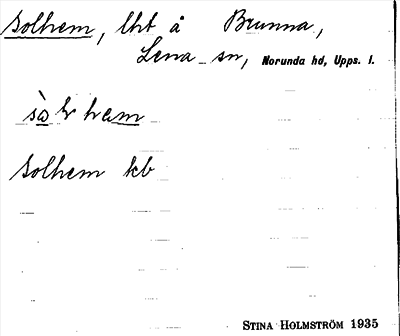 Solhem, lht å Brunna,
Lena sn, Norunda hd, Upps. l.
Solhem kb
STINA HOLMSTRÖM 1935